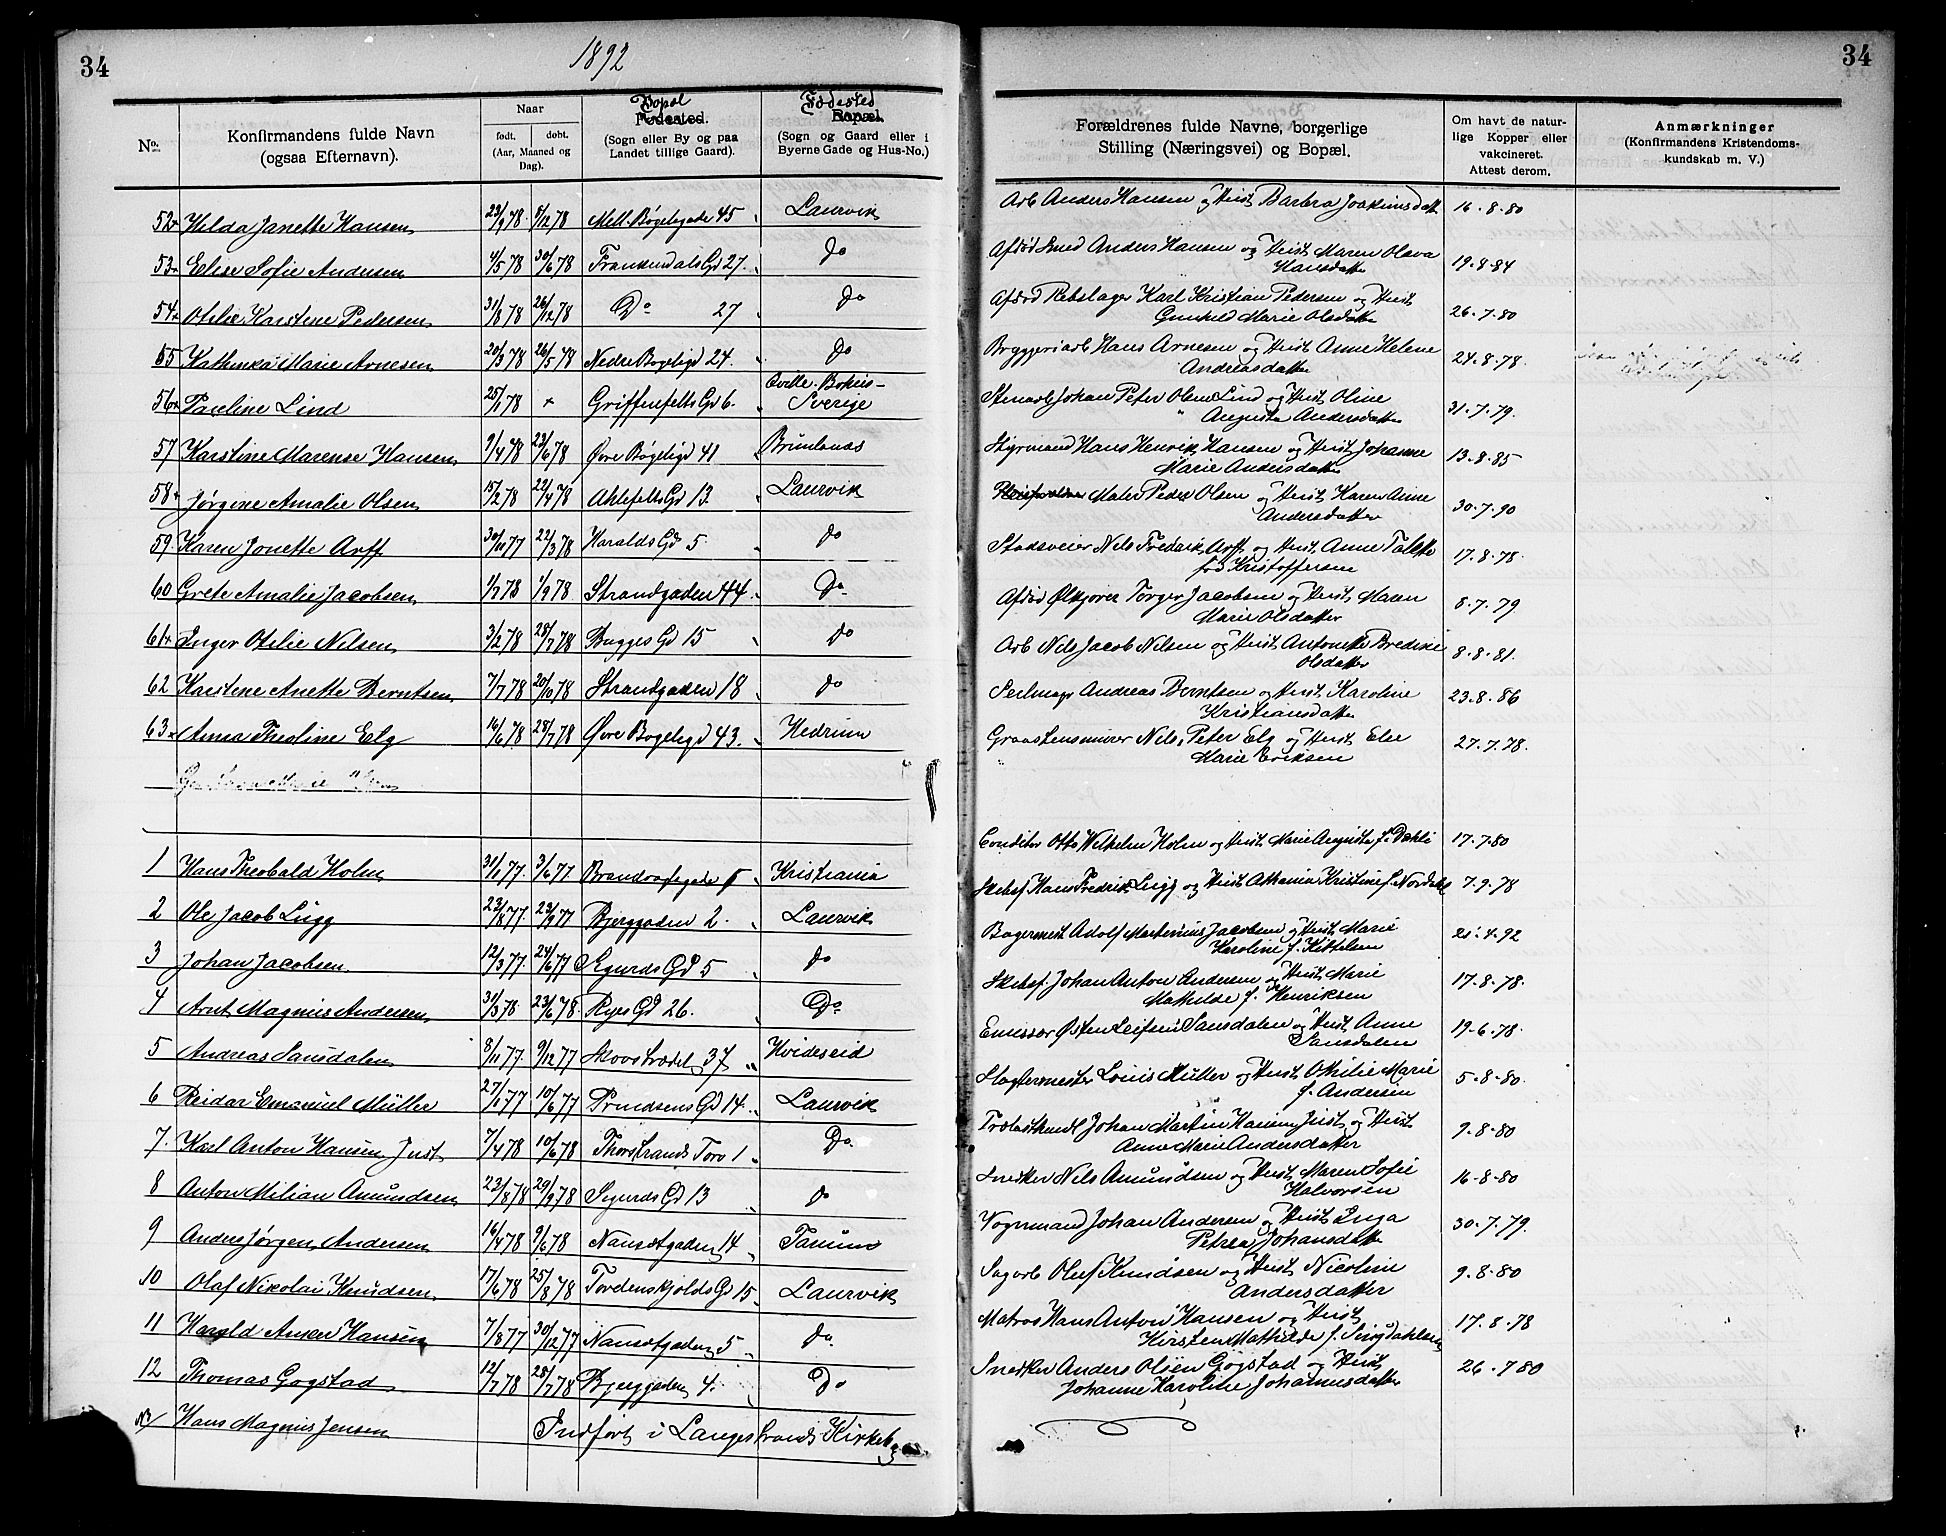 34
1892
No.
Konfirmandens fulde Navn
(ogsaa Efternavn).
Naar
født.
døbt.
(Aar, Maaned og
Dag).
Bopæl
Fødested.
(Sogn eller By og paa
Landet tillige Gaard).
Fødested
Bopæl.
(Sogn og Gaard eller i
Byerne Gade og Hus-No.)
52 Hilda Janette Hansen 23/9 78. 8/12 78 Mell. Bøgeligade 45 Laurvik
53 Elise Sofie Andersen 4/5 78 30/6 78 Frankendals Gd 27. do
54 Otilie Karstene Pedersen 31/8 78 26/12 78 Do 27 do
55 Kathinka Marie Arnesen 20/3 78 26/5 78 Nedre Bøgeligd 24. do
56 Pauline Lind 25/1 78 + Griffenfelts Gd 6. Qville. Bohus- Sverige
57 Karstine Marense Hansen 9/4 78 23/6 78 Øvre Bøgeligd 41 Brunlanæs
58 Jørgine Amalie Olsen 15/2 78 22/4 78 Ahlefelts Gd 13. Laurvik
59. Karen Jonette Arff 30/11 77 22/3 78 Haralds Gd 5 do
60 Grete Amalie Jacobsen 1/7 78 1/9 78 Strandgaden 44. Do.
61 Inger Otilie Nilsen 3/2 78 28/7 78 Bugges Gd 15 do
62 Karstene Anette Berntsen 7/7 78 20/10 78 Strandgaden 18 do
63 Anna Theoline Elg 16/6 78 28/7 78 Øvre Bøgeligd 43. Hedrum
1 Hans Theobald Holm 31/1 77. 3/6 77 Kristiania
2 Ole Jacob Lugg 23/8 77. 23/9 77 Bjerggaden 2. Laurvik
3 Johan Jacobsen 12/3 77. 24/6 77 Sigurds Gd 5 do
4 Arnt Magnus Andersen 31/3 78. 23/6 78. Ryes Gd 26. Do.
5 Andreas Sansdalen 8/11 77. 9/12 77 Skovstrædet 37 Hvideseid
6 Reidar Emanuel Müller 27/1 77 10/6 77 Prindsens Gd 14. Laurvik
7. Karl Anton Hansen Just 7/4 78 10/6 78 Thorstrands Torv 1 Do.
8 Anton Milian Amundsen 23/8 78 29/9 78 Sigurds Gd 13 do
9 Anders Jørgen Andersen 16/4 78 9/6 78 Nansetgaden 14 Tanum
10 Olaf Nikolai Knudsen 17/6 78 25/8 78 Tordenskjolds Gd 15 Laurvik
11 Harald Anker Hansen 7/8 77 30/12 77 Nansetgaden 5 do.
12 Thomas Gogstad 12/7 78 28/7 78 Bjerggaden 4. Do
Hans Magnus Jensen Indført i Langestrands Kirkeb
34
Forældrenes fulde Navne, borgerlige
Stilling (Næringsvei) og Bopæl.
Om havt de natur-
lige Kopper eller
vakcineret.
Attest derom.
Anmærkninger
(Konfirmandens Kristendoms-
kundskab m. V.)
Arb Anders Hansen og Hust Barbra Joakimsdatt 16-8-80
Afdød Smed Anders Hansen og Hust Maren Olava 19-8-84
Hansdatter
Afdød Rebslager Karl Kristian Pedersen og Hust 26-7-80
Gunhild Marie Olsdatter
Bryggeriarb Hans Arnesen og Hust Anne Helene 24-8-78.
Andreasdatter
Stenarb Johan Peter Olsen Lind og Hust Oline 31-7-79.
Augusta Andersdatter
Styrmand Hans Henrik Hansen og Hust Johanne 13-8-85
Marie Andersdatter
Maler Peder Olsen og Hust Karen Anne 30-7-90
Andersdatter
Stadsveier Nils Fredrik Arff og Hust Anne 17-8-78.
fød Kristoffersen
Afdød Ølkjører Torger Jacobsen og Hust Maren 8-7-79
Marie Olsdatter
Arb Nils Jacob Nilsen og Hust Antonette Bredine 8-8-81.
Olsdatter
Seilmager Andreas Berntsen og Hust Karoline 23-8-86
Kristiansdatter
Graastensmurer Nils Peter Elg og Hust Else 27-7-78.
Marie Eriksen
Conditor Otto Wilhelm Holm og Hust Marie Augusta f. Dæhli 17-7-80
Skibsf Hans Fredrik Lugg og Hust Athania Kristine f. 7-9-78
Bagermest Adolf Martinius Jacobsen og Hust Marie 21-4-92
Karoline f. Kittelsen
Skibsf. Johan Anton Andersen og Hust Marie 17-8-78.
Mathilde f. Henriksen
Emissær Østen Leifsen Sansdalen og Hust Anne 19-6-78.
Sansdalen
Slagtermester Louis Müller og Hust Othilie Marie 5-8-80.
f. Andersen
Trælasthandl Johan Martin Hansen Just og Hust 9-8-80
Anne Marie Andersdatter
Snedker Nils Amundsen og Hust Maren Sofie 16-8-80
Halvorsen
Vognmand Johan Andersen og Hust Inga 30-7-79.
Petrea Johansdatt
Sagarb Oluf Knudsen og Hust Nicoline 9-8-80
Andersdatter
Matros Hans Anton Hansen og Hust 17-8-78
Kirsten Mathilde f.
Snedker Anders Olsen Gogstad og Hust 26-7 80
Johanne Karoline Johannesdatter